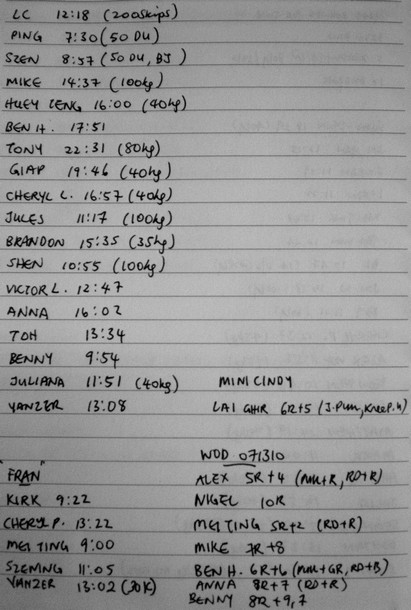 LC 12:18 (200skips)
PING 7:30 (50 DU)
SZEN 8:57 (50 DU, BJ)
MIKE 14:37 (100kg)
HUEY ZENG 16:00 (40kg)
BEN H. 17:51
TONY 22:31 (80kg)
GIAP 19:46 (40kg)
CHERYL C. 16:57 (40kg)
JULES 11:17 (100kg)
BRANDON 15:35 (35kg)
SHEN 10:55 (100kg)
VICTOR L. 12:47
ANNA 16:02
TOH 13:34
BENNY 9:54
JULIANA 11:51 (40kg)
YANZER 13:08
MINI CINDY
LAI GHIR 6R+5 (J.Pull, KneeP.U)
"FRAN"
KIRK 9:22
CHERYL P. 13:22
MEI TING 9:00
SZEMNG 11:05
YANZER 13:02 (20K)
WOD 071310
ALEX 5R+4 (MU+R, RD+R)
NIGEL 10R
MEI TING 5R+2 (RD+R)
MIKE 7R+8
BEN H. 6R+6 (MU+GR, RD+B)
ANNA 8R+7 (RD+R)
BENNY 8R+9,7